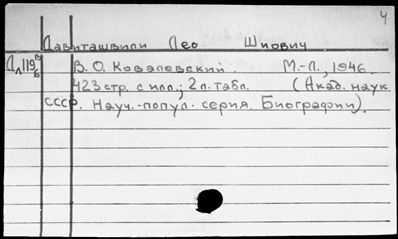 4
Давиташвили Лео Шиович
Дл119в/б В. О. Ковалевский. М.-Л., 1946.
423 стр. с илл.; 2 л. табл. (Акад. наук
СССР. Науч.-попул. серия. Биографии).